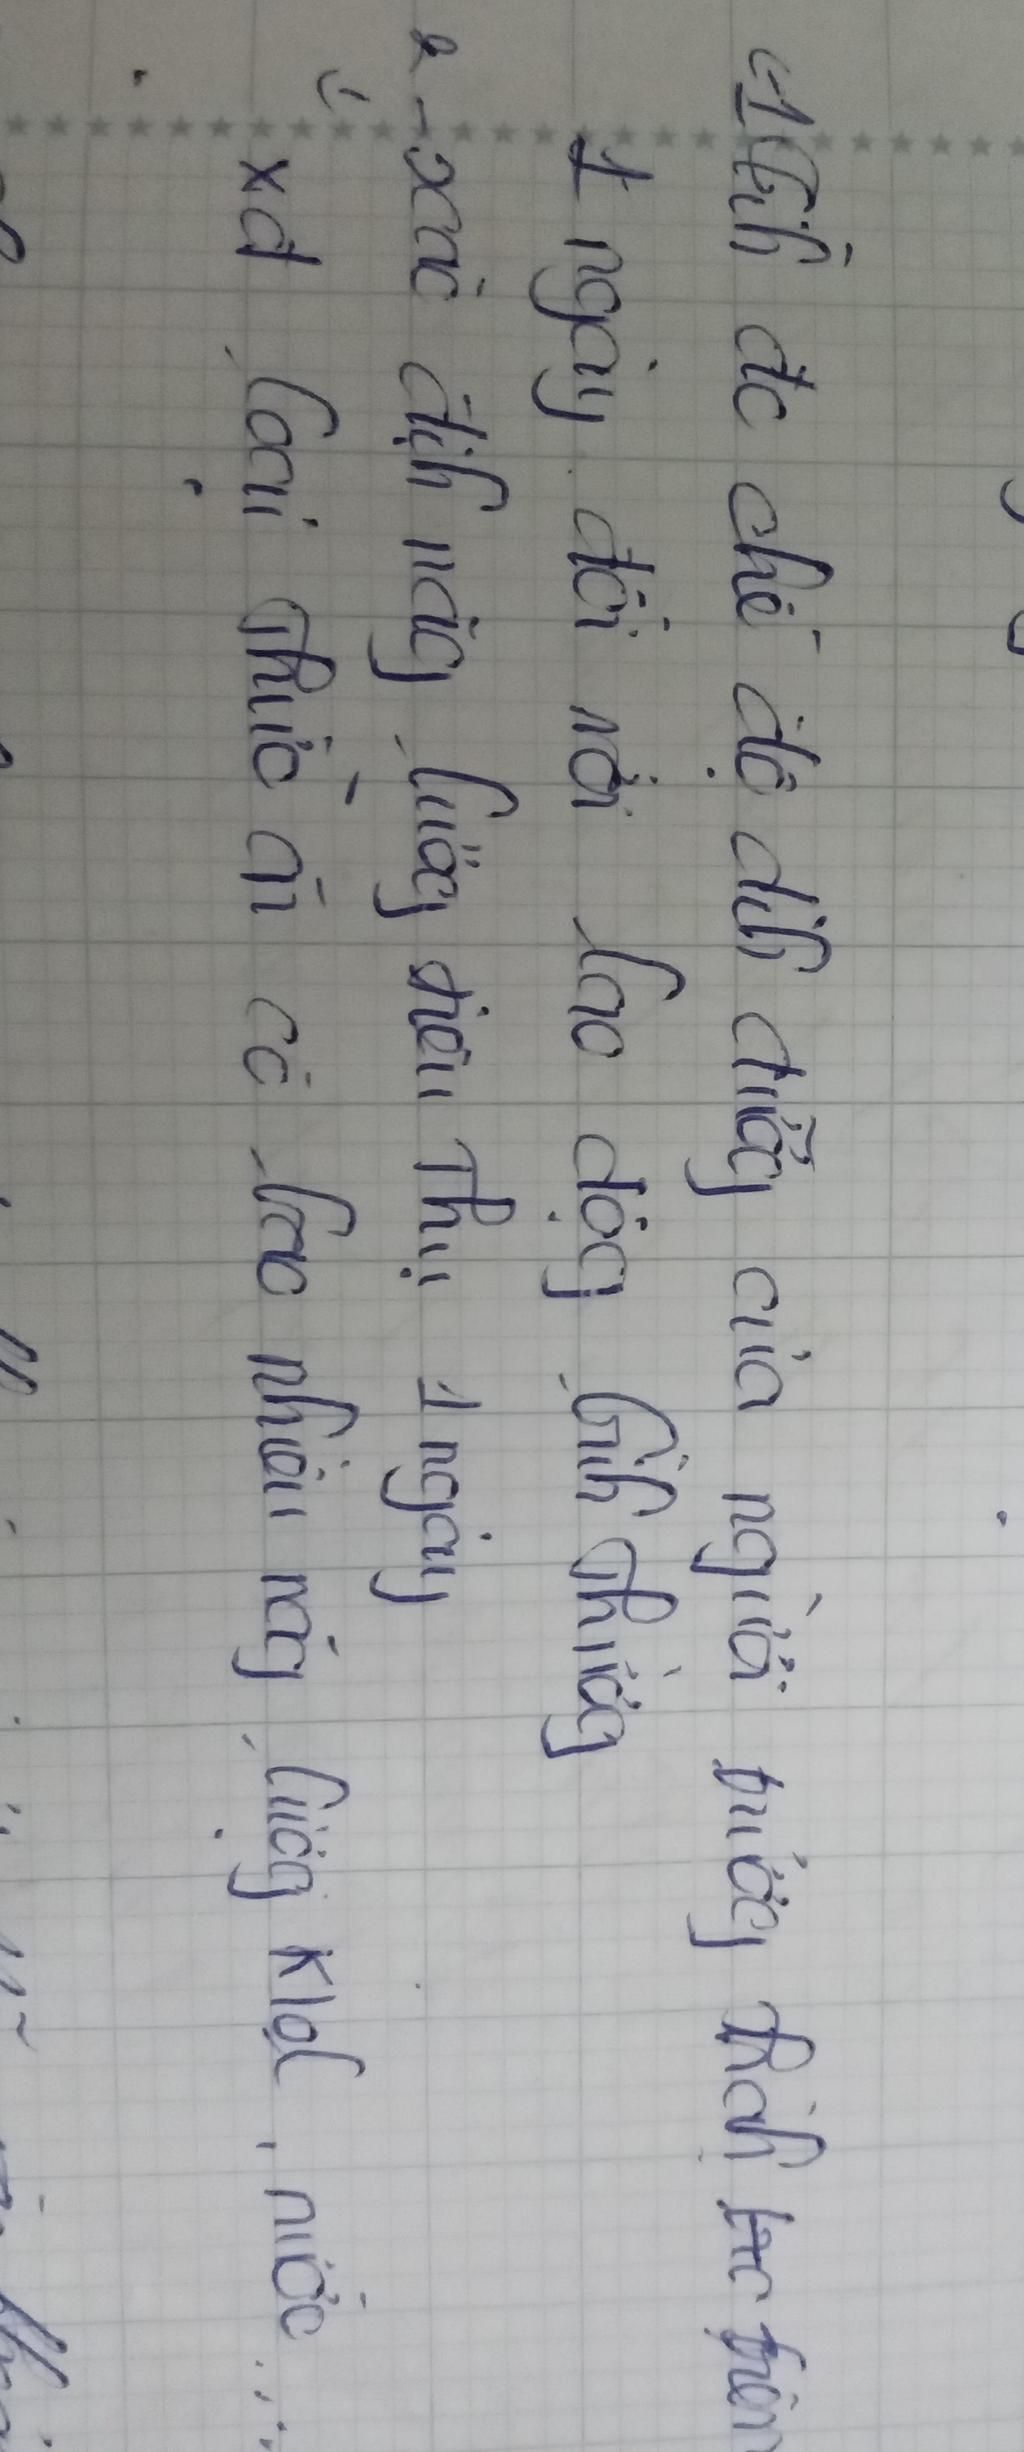 1 Tíh đc chế độ dih dưỡg của người trưởg thàh trên
1 ngày đối với lao độg bìh thườg
2 - xác địh năg lượg tiêu thụ 1 ngày
xđ loại thức ăn có bao nhiêu năg lượg Klol, nước ...